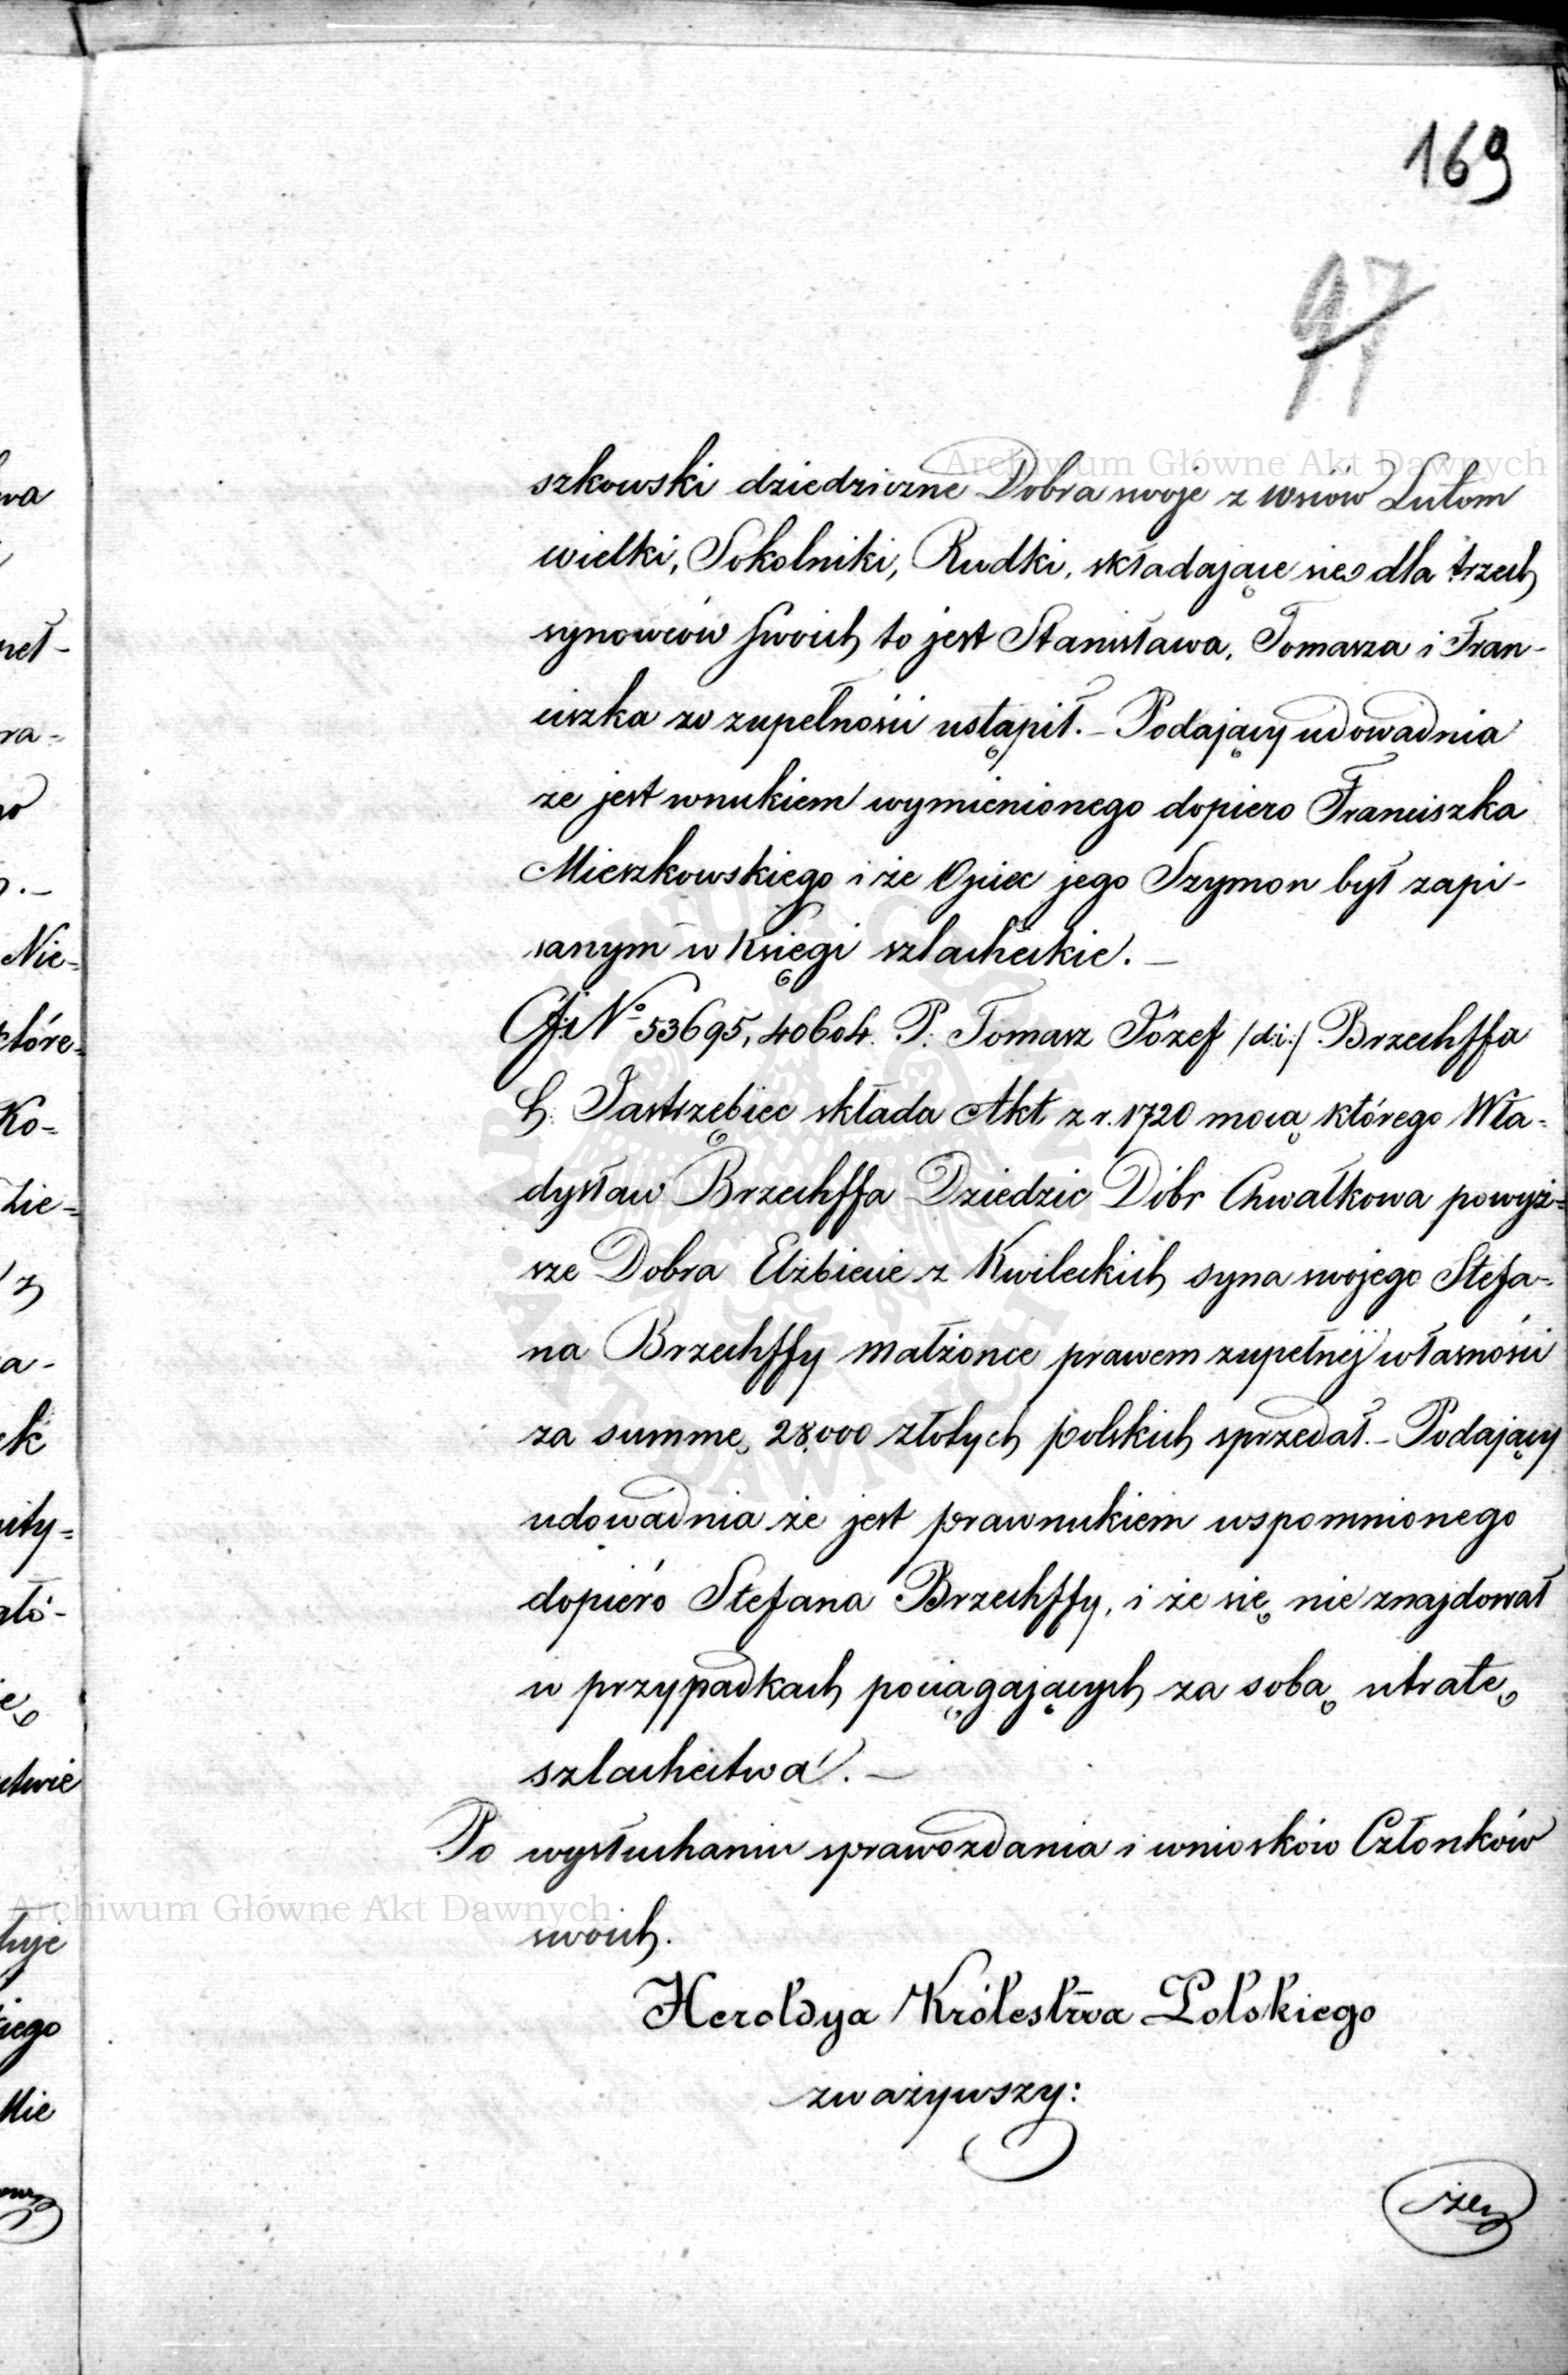 169
97
szkowski dziedziczne Dobra swoje z wsiów Lutom
wielki, Sokolniki, Rudki, składające się dla trzech
synowców swoich to jest Stanisława, Tomasza i Fran-
ciszka w zupełności ustąpił. – Podający udowadnia
że jest wnukiem wymienionego dopiero Franciszka
Mieszkowskiego i że Ojciec jego Szymon był zapi-
sanym w księgi szlacheckie. –
No 53695, 40604. P. Tomasz Józef /d:i:/ Brzechffa
h. Jastrzębiec składa Akt z r. 1720 mocą którego Wła-
dysław Brzechffa Dziedzic Dóbr Chwałkowa powyż-
sze Dobra Elżbiecie z Kwileckich syna swojego Stefa-
na Brzechffy małżonce prawem zupełnej własności
za summę 28,000 złotych polskich sprzedał. – Podający
udowadnia że jest prawnukiem wspomnionego
dopiéro Stefana Brzechffy, i że się nie znajdował
w przypadkach pociągających za sobą utratę
szlachectwa. –
Po wysłuchaniu sprawozdania i wniosków Członków
swoich.
Heroldya Królestwa Polskiego
zważywszy:
że
wa
Nie-
które-
Ko-
Zie-
z
a-
ek
kiego
Mie
Archiwum Główne Akt Dawnych
Archiwum Główne Akt Dawnych
ARCHIWUM GŁÓWNE AKT DAWNYCH